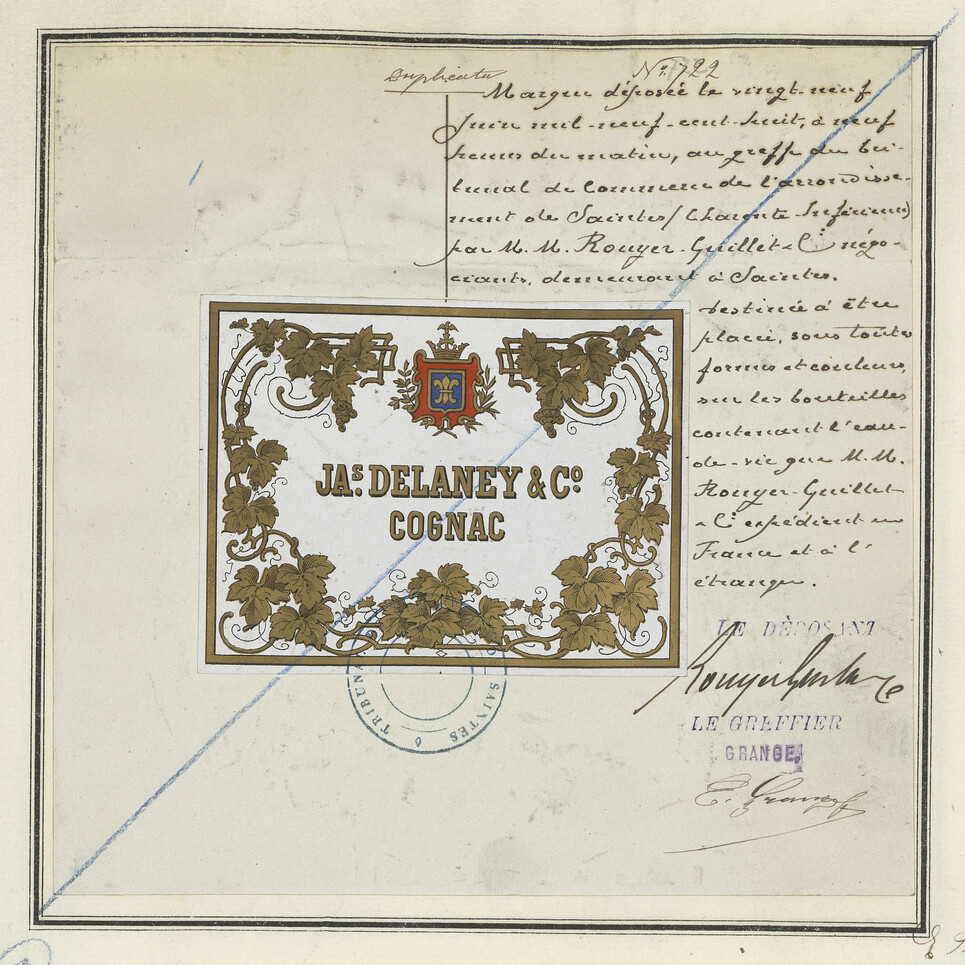 Duplicata
N°. 722
Marque déposée le vingt-neuf
Juin mil-neuf-cent-huit, à neuf
heures du matin, au greffe du tri-
bunal de Commerce de l'arrondisse-
ment de Saintes (Charente-Inférieure)
par M. M. Rouyer-Guillet & Cie négo-
ciants, demeurant à Saintes.
destinée à être
placée, sous toutes
formes et couleurs,
sur les bouteilles
contenant l'eau-
de-vie que M. M.
Rouyer-Guillet
& Cie expédient en
France et à l'
étranger.
JAS. DELANEY & CO.
COGNAC
TRIBUNA
SAINTES
LE DÉPOSANT
LE GREFFIER
GRANGE